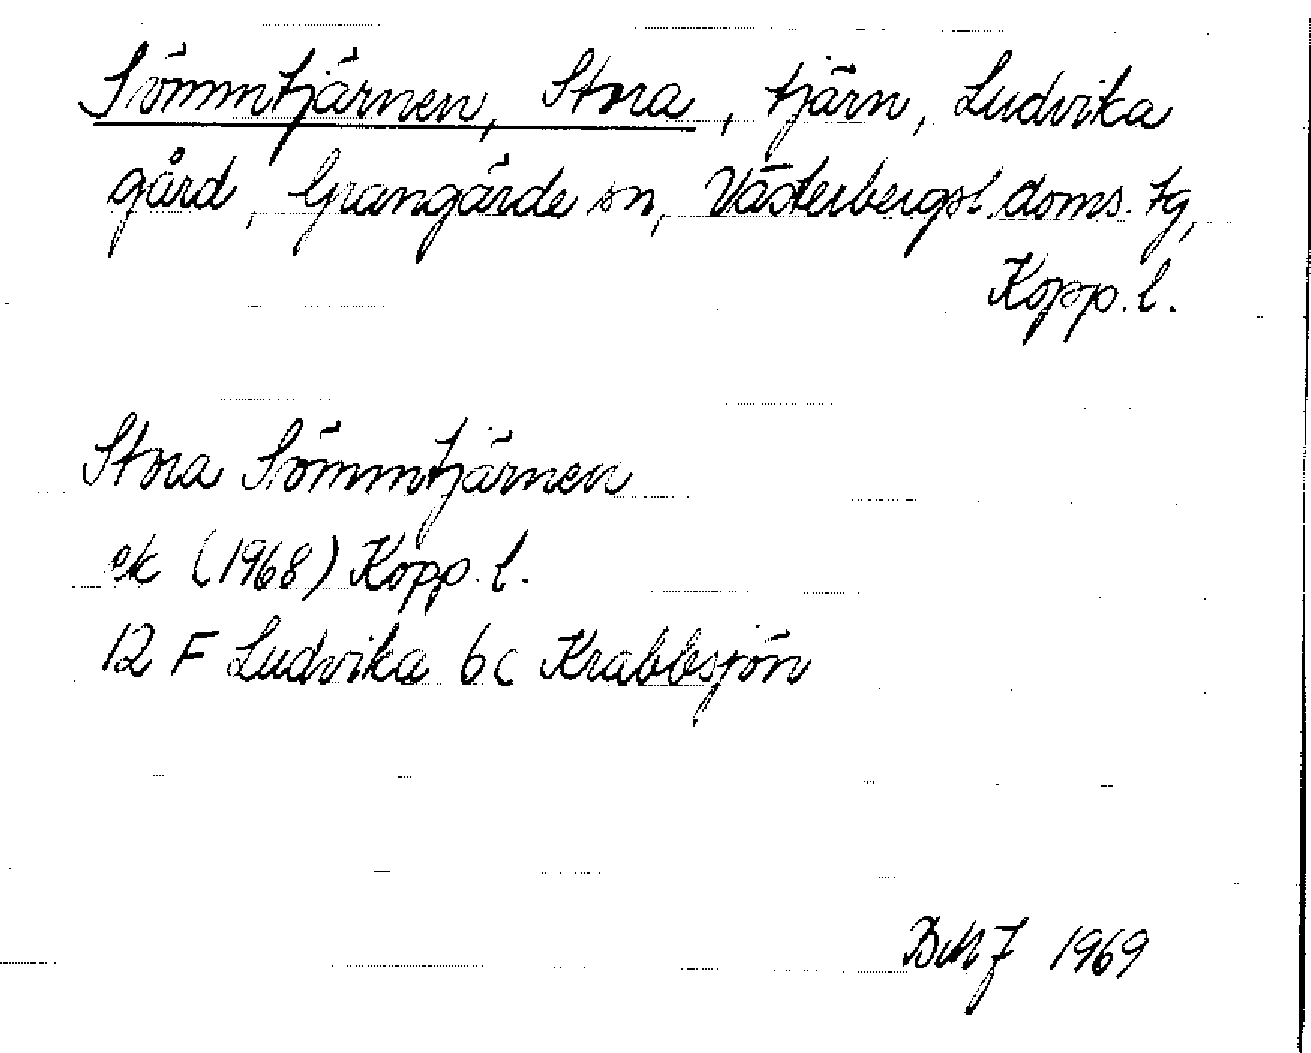 Sömmtjärnen, Stora, tjärn, Ludvika
gård, Grangärde sn, Västerbergsl. doms. tg,
Kopp. l.
Stora Sömmtjärnen
ek (1968) Kopp. l.
12 F Ludvika 6c Krabbsjön
BMJ 1969